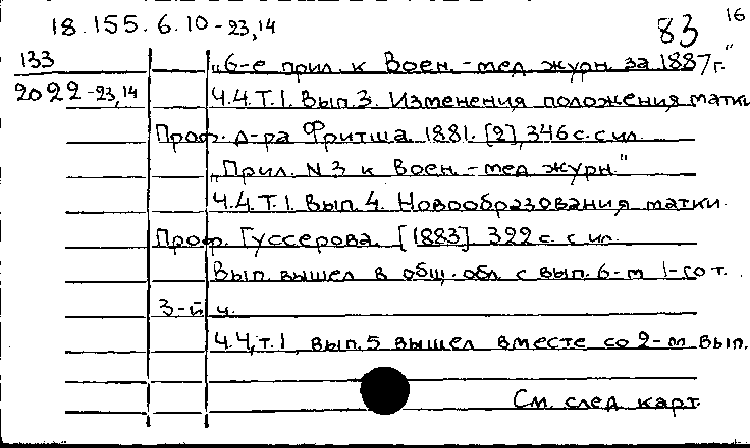 18.155.6.10-23,14
83 16
133 „6-е прил. к Воен.-мед. журн. за 1887 г."
2022-23,14 Ч.4.Т.1. Вып.3. Изменения положения матки
Проф. д-ра Фритша. 1881. [2], 346 с. с ил.
„Прил. N 3 к Воен.-мед. журн."
Ч.4.Т.1. Вып.4. Новообразования матки.
Проф. Гуссерова. [1883]. 322 с. с ил.
Вып. вышел в общ. обл. с вып. 6-м 1-го т.
3-й ч.
Ч.4, т.1, вып.5 вышел вместе со 2-м вып.
См. след. карт.